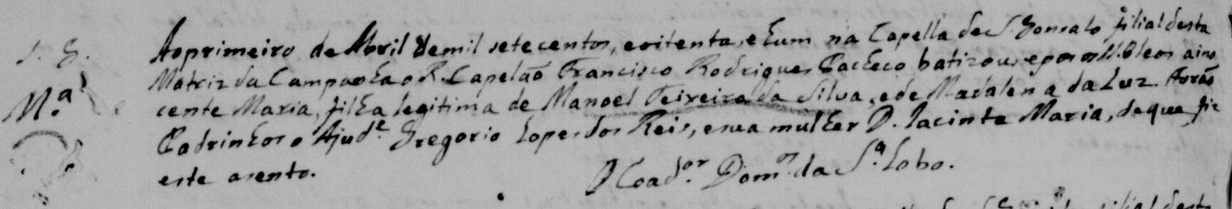 S. G.
M.ª
Ao primeiro de Abril de mil sete centos, e oitenta, e hum na Capella de S. Gonsalo filial desta
Matriz da Campanha o R. Capelão Francisco Rodrigues Pacheco batizou, e pos os S. Oleos a ino
cente Maria, filha legitima de Manoel Teixeira da Silva, e de Madalena da Luz. Forão
Padrinhos o Ajud.e Gregorio Lopes dos Reis, e sua mulher D. Jacinta Maria, de que fiz
este asento.
O Coad.or Dom.os da S.ª Lobo.
filial desta